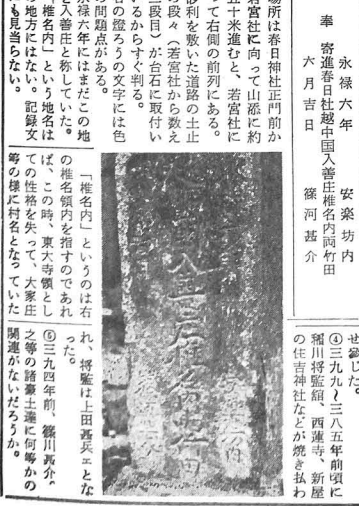 永禄六年　安楽坊内
奉　寄進春日社越中国入善庄椎名内両竹田
六月吉日　篠河甚介
場所は春日神社正門前か
若宮社に向って山添に約
五十米進むと、若宮社に
って右側の前列にある。
砂利を敷いた道路の土止
段々（若宮社から数え
三段目）が台石に取付い
いるからすぐ判る。
の燈ろうの文字には色
問題点がある。
永禄六年にはまだこの地
を入善庄と称していた。
「椎名内」という地名は
地方にはない。記録文
も見当らない。
「椎名内」というのは右
の椎名領内を指すのであれ
ば、この時、東大寺領とし
ての性格を失って、大家庄
等の様に村名となっていた
せ参じた。
④三九九〜三八五年前頃に
稲川将監舘、西蓮寺、新屋
の住吉神社などが焼き払わ
れ、将監は上田甚兵ェとな
った。
⑤三九四年前、篠川甚介。
之等の諸豪士達に何等かの
関連がないだろうか。